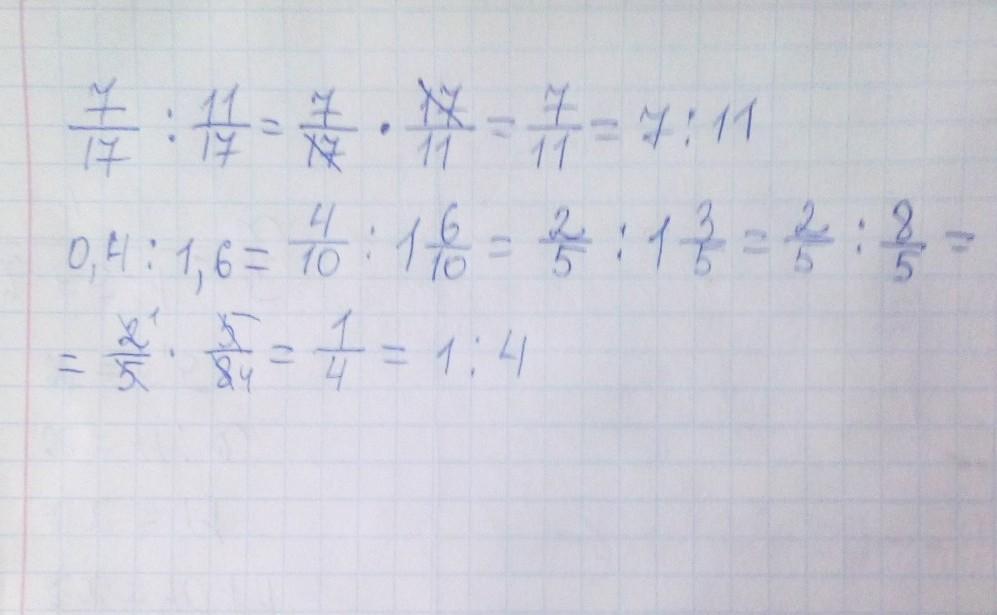 7/17 : 11/17 = 7/17 · 17/11 = 7/11 = 7 : 11
0,4 : 1,6 = 4/10 : 1 6/10 = 2/5 : 1 3/5 = 2/5 : 8/5 =
= 2 1/5 · 5/8 4 = 1/4 = 1 : 4